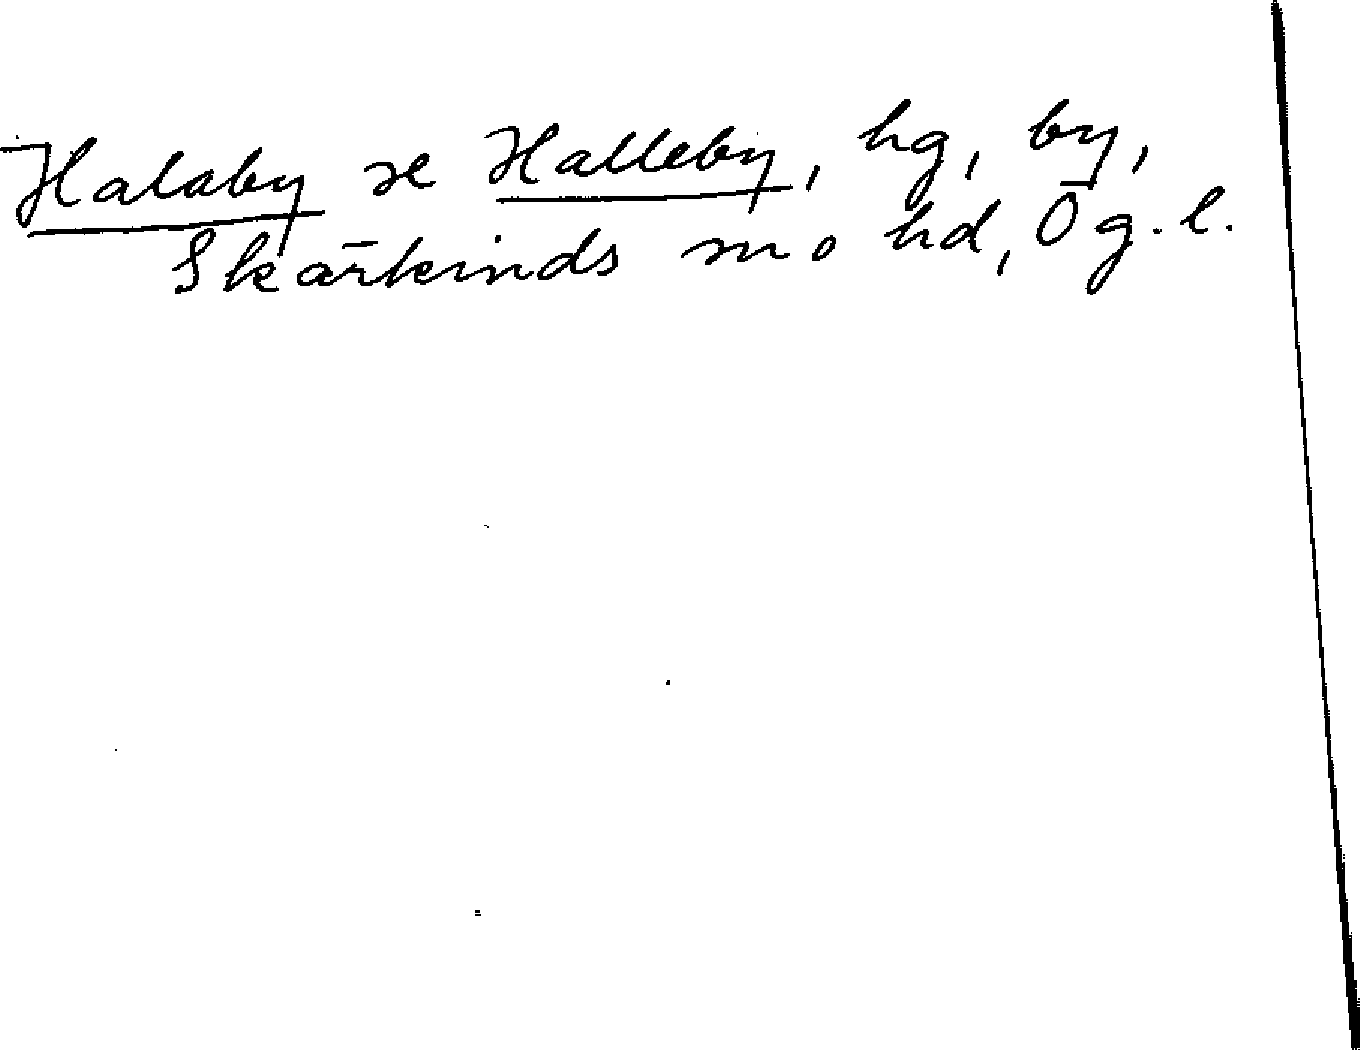 Halaby se Halleby, hg, by,
Skärkinds sn o hd, Ög. l.